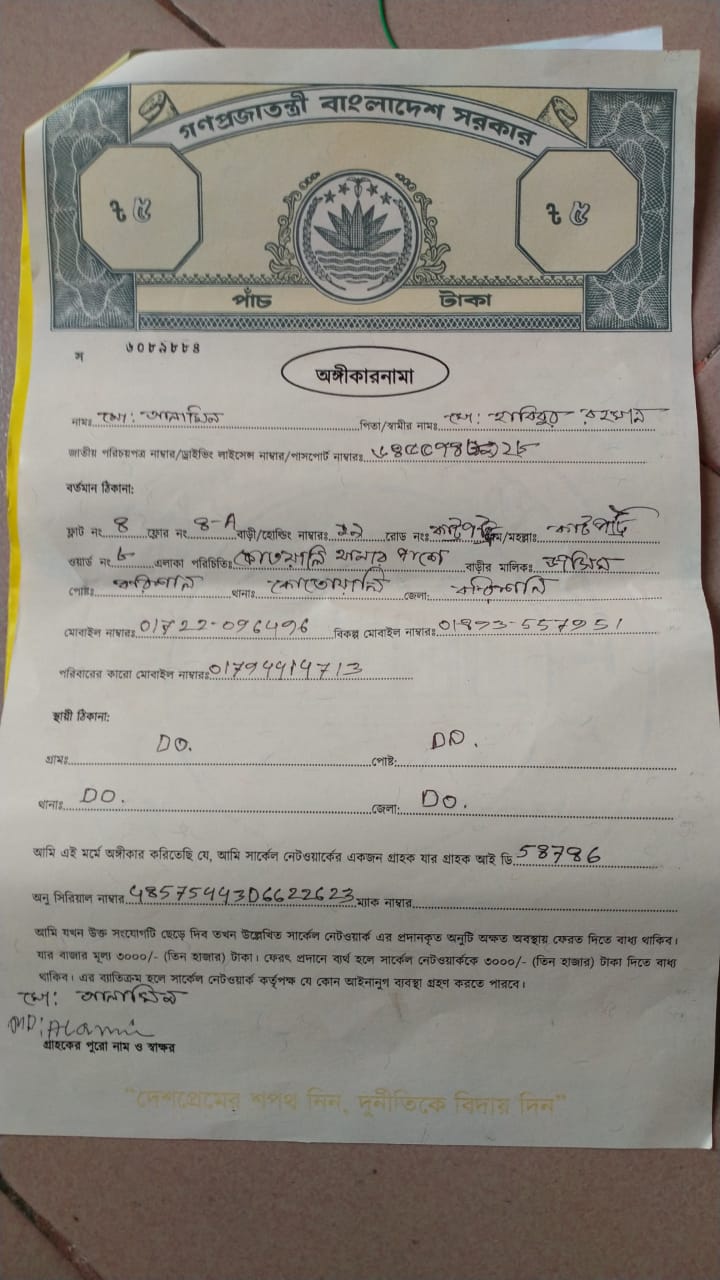 গণপ্রজাতন্ত্রী বাংলাদেশ সরকার
৳ ৫ ৳ ৫
পাঁচ টাকা
স ৬০৮৯৮৮৪
অঙ্গীকারনামা
নামঃ মো: আলামিন পিতা/স্বামীর নামঃ মো: হাবিবুর রহমান
জাতীয় পরিচয়পত্র নাম্বার/ড্রাইভিং লাইসেন্স নাম্বার/পাসপোর্ট নাম্বারঃ
বর্তমান ঠিকানা:
ফ্লাট নং 8 ফ্লোর নং 8-A বাড়ী/হোল্ডিং নাম্বারঃ রোড নংঃ কাটপট্টি গ্রাম/মহল্লাঃ কাটপট্টি
ওয়ার্ড নংঃ ৮ এলাকা পরিচিতিঃ কোতয়ালি থানার পাশে বাড়ীর মালিকঃ
পোষ্টঃ বরিশাল থানাঃ কোতোয়ালি জেলা: বরিশাল
মোবাইল নাম্বারঃ 01722-096496 বিকল্প মোবাইল নাম্বারঃ
পরিবারের কারো মোবাইল নাম্বারঃ
স্থায়ী ঠিকানা:
গ্রামঃ DO. পোষ্ট: DO.
থানাঃ DO. জেলা: DO.
আমি এই মর্মে অঙ্গীকার করিতেছি যে, আমি সার্কেল নেটওয়ার্কের একজন গ্রাহক যার গ্রাহক আই ডি 58786
অনু সিরিয়াল নাম্বার 48575443D6622623 ম্যাক নাম্বার
আমি যখন উক্ত সংযোগটি ছেড়ে দিব তখন উল্লেখিত সার্কেল নেটওয়ার্ক এর প্রদানকৃত অনুটি অক্ষত অবস্থায় ফেরত দিতে বাধ্য থাকিব।
যার বাজার মূল্য ৩০০০/- (তিন হাজার) টাকা। ফেরৎ প্রদানে ব্যর্থ হলে সার্কেল নেটওয়ার্ককে ৩০০০/- (তিন হাজার) টাকা দিতে বাধ্য
থাকিব। এর ব্যতিক্রম হলে সার্কেল নেটওয়ার্ক কর্তৃপক্ষ যে কোন আইনানুগ ব্যবস্থা গ্রহণ করতে পারবে।
মো: আলামিন
MD: Alamin
গ্রাহকের পুরো নাম ও স্বাক্ষর
"দেশপ্রেমের শপথ নিন, দুর্নীতিকে বিদায় দিন"